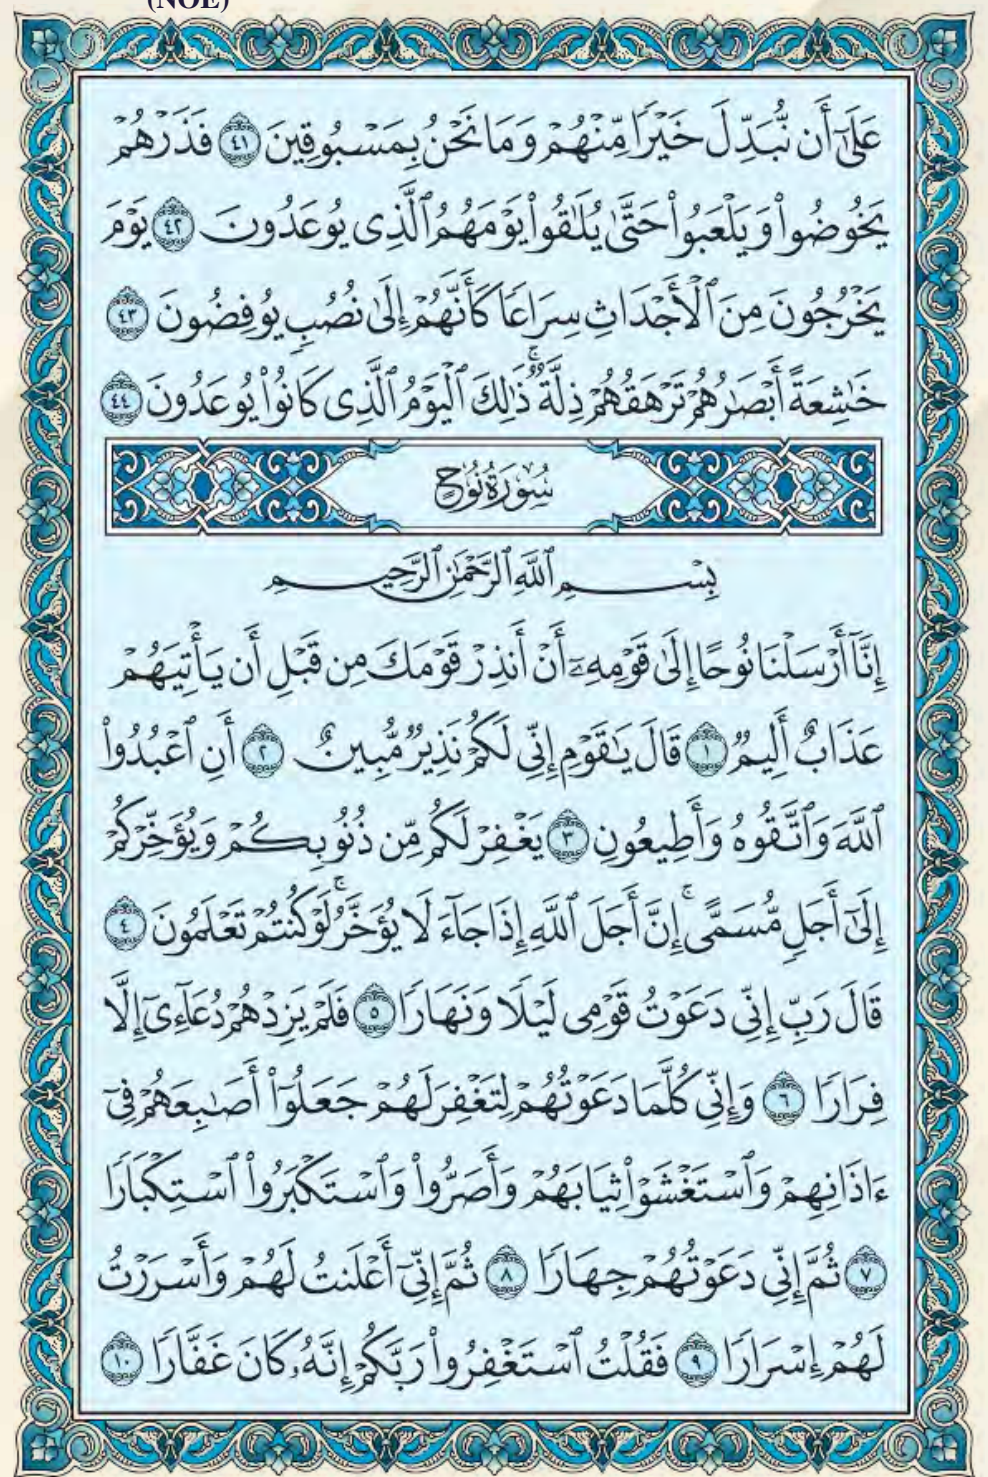 (NOE)
عَلَىٰٓ أَن نُّبَدِّلَ خَيْرًا مِّنْهُمْ وَمَا نَحْنُ بِمَسْبُوقِينَ ٤١ فَذَرْهُمْ
يَخُوضُوا۟ وَيَلْعَبُوا۟ حَتَّىٰ يُلَٰقُوا۟ يَوْمَهُمُ ٱلَّذِى يُوعَدُونَ ٤٢ يَوْمَ
يَخْرُجُونَ مِنَ ٱلْأَجْدَاثِ سِرَاعًا كَأَنَّهُمْ إِلَىٰ نُصُبٍ يُوفِضُونَ ٤٣
خَٰشِعَةً أَبْصَٰرُهُمْ تَرْهَقُهُمْ ذِلَّةٌ ۚ ذَٰلِكَ ٱلْيَوْمُ ٱلَّذِى كَانُوا۟ يُوعَدُونَ ٤٤
سُورَةُ نُوحٍ
بِسْمِ ٱللَّهِ ٱلرَّحْمَٰنِ ٱلرَّحِيمِ
إِنَّآ أَرْسَلْنَا نُوحًا إِلَىٰ قَوْمِهِۦٓ أَنْ أَنذِرْ قَوْمَكَ مِن قَبْلِ أَن يَأْتِيَهُمْ
عَذَابٌ أَلِيمٌ ١ قَالَ يَٰقَوْمِ إِنِّى لَكُمْ نَذِيرٌ مُّبِينٌ ٢ أَنِ ٱعْبُدُوا۟
ٱللَّهَ وَٱتَّقُوهُ وَأَطِيعُونِ ٣ يَغْفِرْ لَكُم مِّن ذُنُوبِكُمْ وَيُؤَخِّرْكُمْ
إِلَىٰٓ أَجَلٍ مُّسَمًّى ۚ إِنَّ أَجَلَ ٱللَّهِ إِذَا جَآءَ لَا يُؤَخَّرُ ۖ لَوْ كُنتُمْ تَعْلَمُونَ ٤
قَالَ رَبِّ إِنِّى دَعَوْتُ قَوْمِى لَيْلًا وَنَهَارًا ٥ فَلَمْ يَزِدْهُمْ دُعَآءِىٓ إِلَّا
فِرَارًا ٦ وَإِنِّى كُلَّمَا دَعَوْتُهُمْ لِتَغْفِرَ لَهُمْ جَعَلُوٓا۟ أَصَٰبِعَهُمْ فِىٓ
ءَاذَانِهِمْ وَٱسْتَغْشَوْا۟ ثِيَابَهُمْ وَأَصَرُّوا۟ وَٱسْتَكْبَرُوا۟ ٱسْتِكْبَارًا
٧ ثُمَّ إِنِّى دَعَوْتُهُمْ جِهَارًا ٨ ثُمَّ إِنِّىٓ أَعْلَنتُ لَهُمْ وَأَسْرَرْتُ
لَهُمْ إِسْرَارًا ٩ فَقُلْتُ ٱسْتَغْفِرُوا۟ رَبَّكُمْ إِنَّهُۥ كَانَ غَفَّارًا ١٠